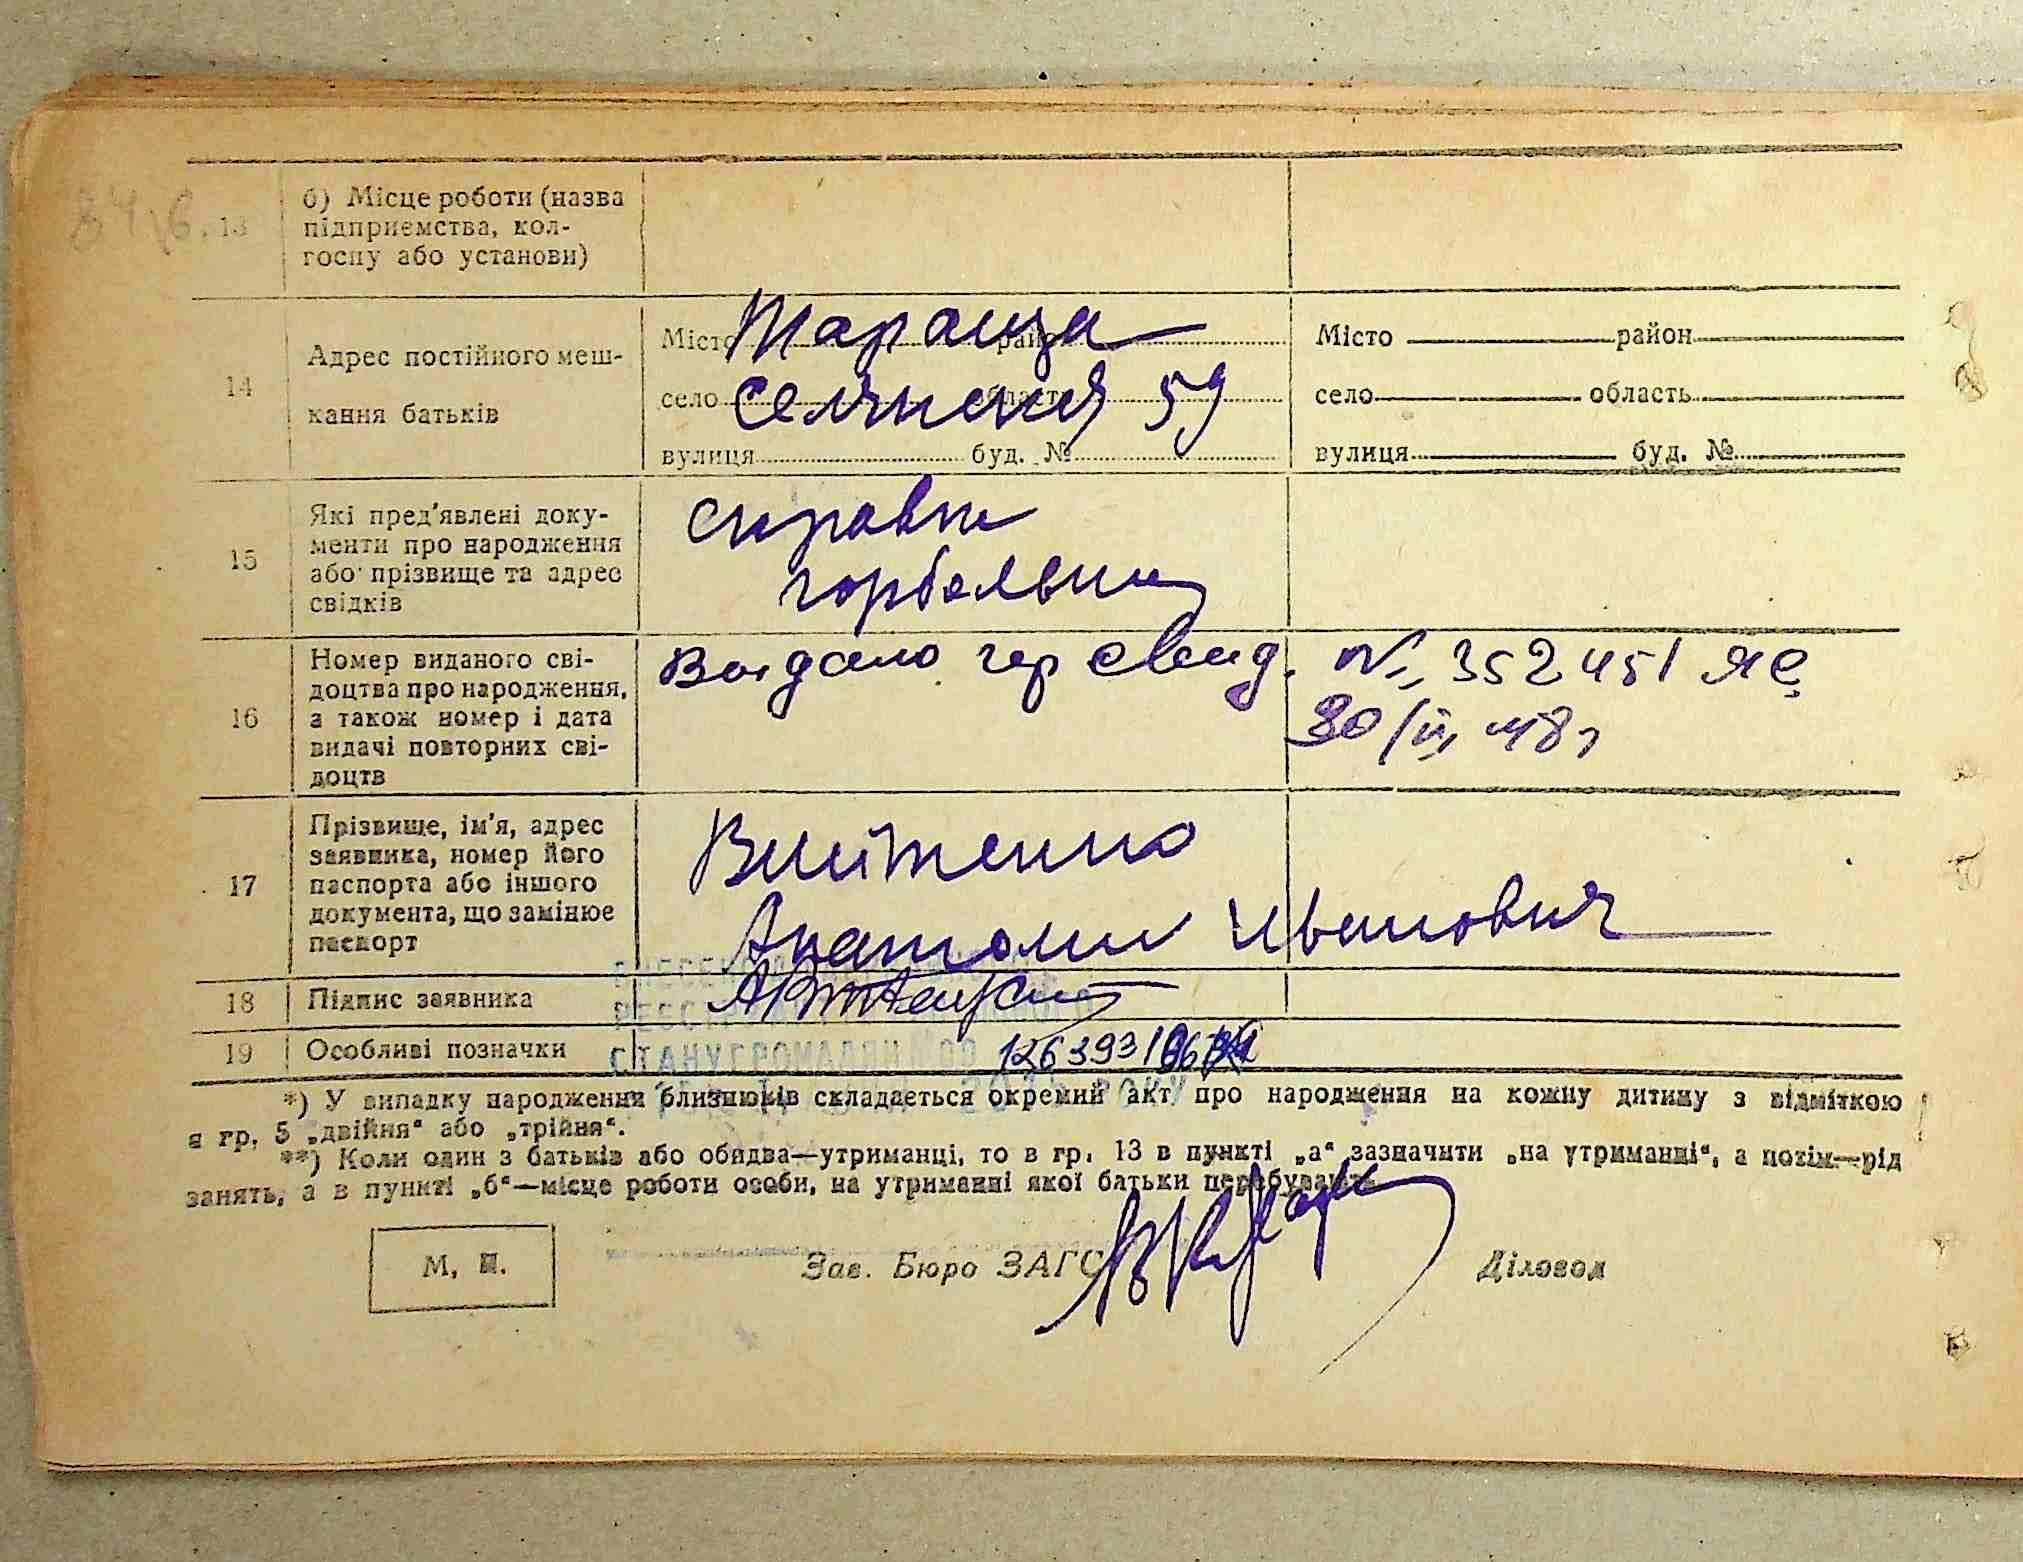 13
б) Місце роботи (назва
підприємства, кол-
госпу або установи)
14
Адрес постійного меш-
кання батьків
Місто Тараща район
село Селянська 59 область
вулиця буд. №
Місто район
село область
вулиця буд. №
15
Які пред'явлені доку-
менти про народження
або прізвище та адрес
свідків
справка
горбольниц
16
Номер виданого сві-
доцтва про народження,
а також номер і дата
видачі повторних сві-
доцтв
Выдано гер свид. № 352451 ЯС
30/ІІ 48 г
17
Прізвище, ім'я, адрес
заявника, номер його
паспорта або іншого
документа, що замінює
паспорт
Войтенко
Анатолий Иванович
18
Підпис заявника
19
Особливі позначки
СТАНУ ГРОМАДЯН
*) У випадку народження близнюків складається окремий акт про народження на кожну дитину з відміткою
в гр. 5 „двійня“ або „трійня“.
**) Коли один з батьків або обидва—утриманці, то в гр. 13 в пункті „а“ зазначити „на утриманні“, а потім—рід
занять, а в пункті „б“—місце роботи особи, на утриманні якої батьки перебувають.
М. П.
Зав. Бюро ЗАГС
Діловод